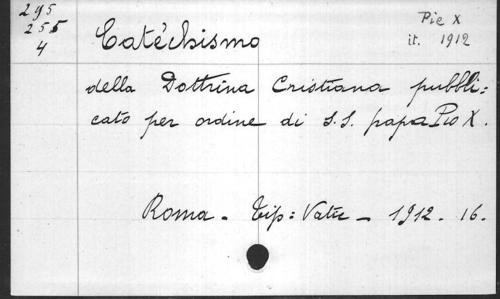 295
255
4
Pie X
it. 1912
Catéchismo
della Dottrina Cristiana pubbli=
cato per ordine di S.S. papa Pio X.
Roma - Tip: Vatic - 1912. 16.